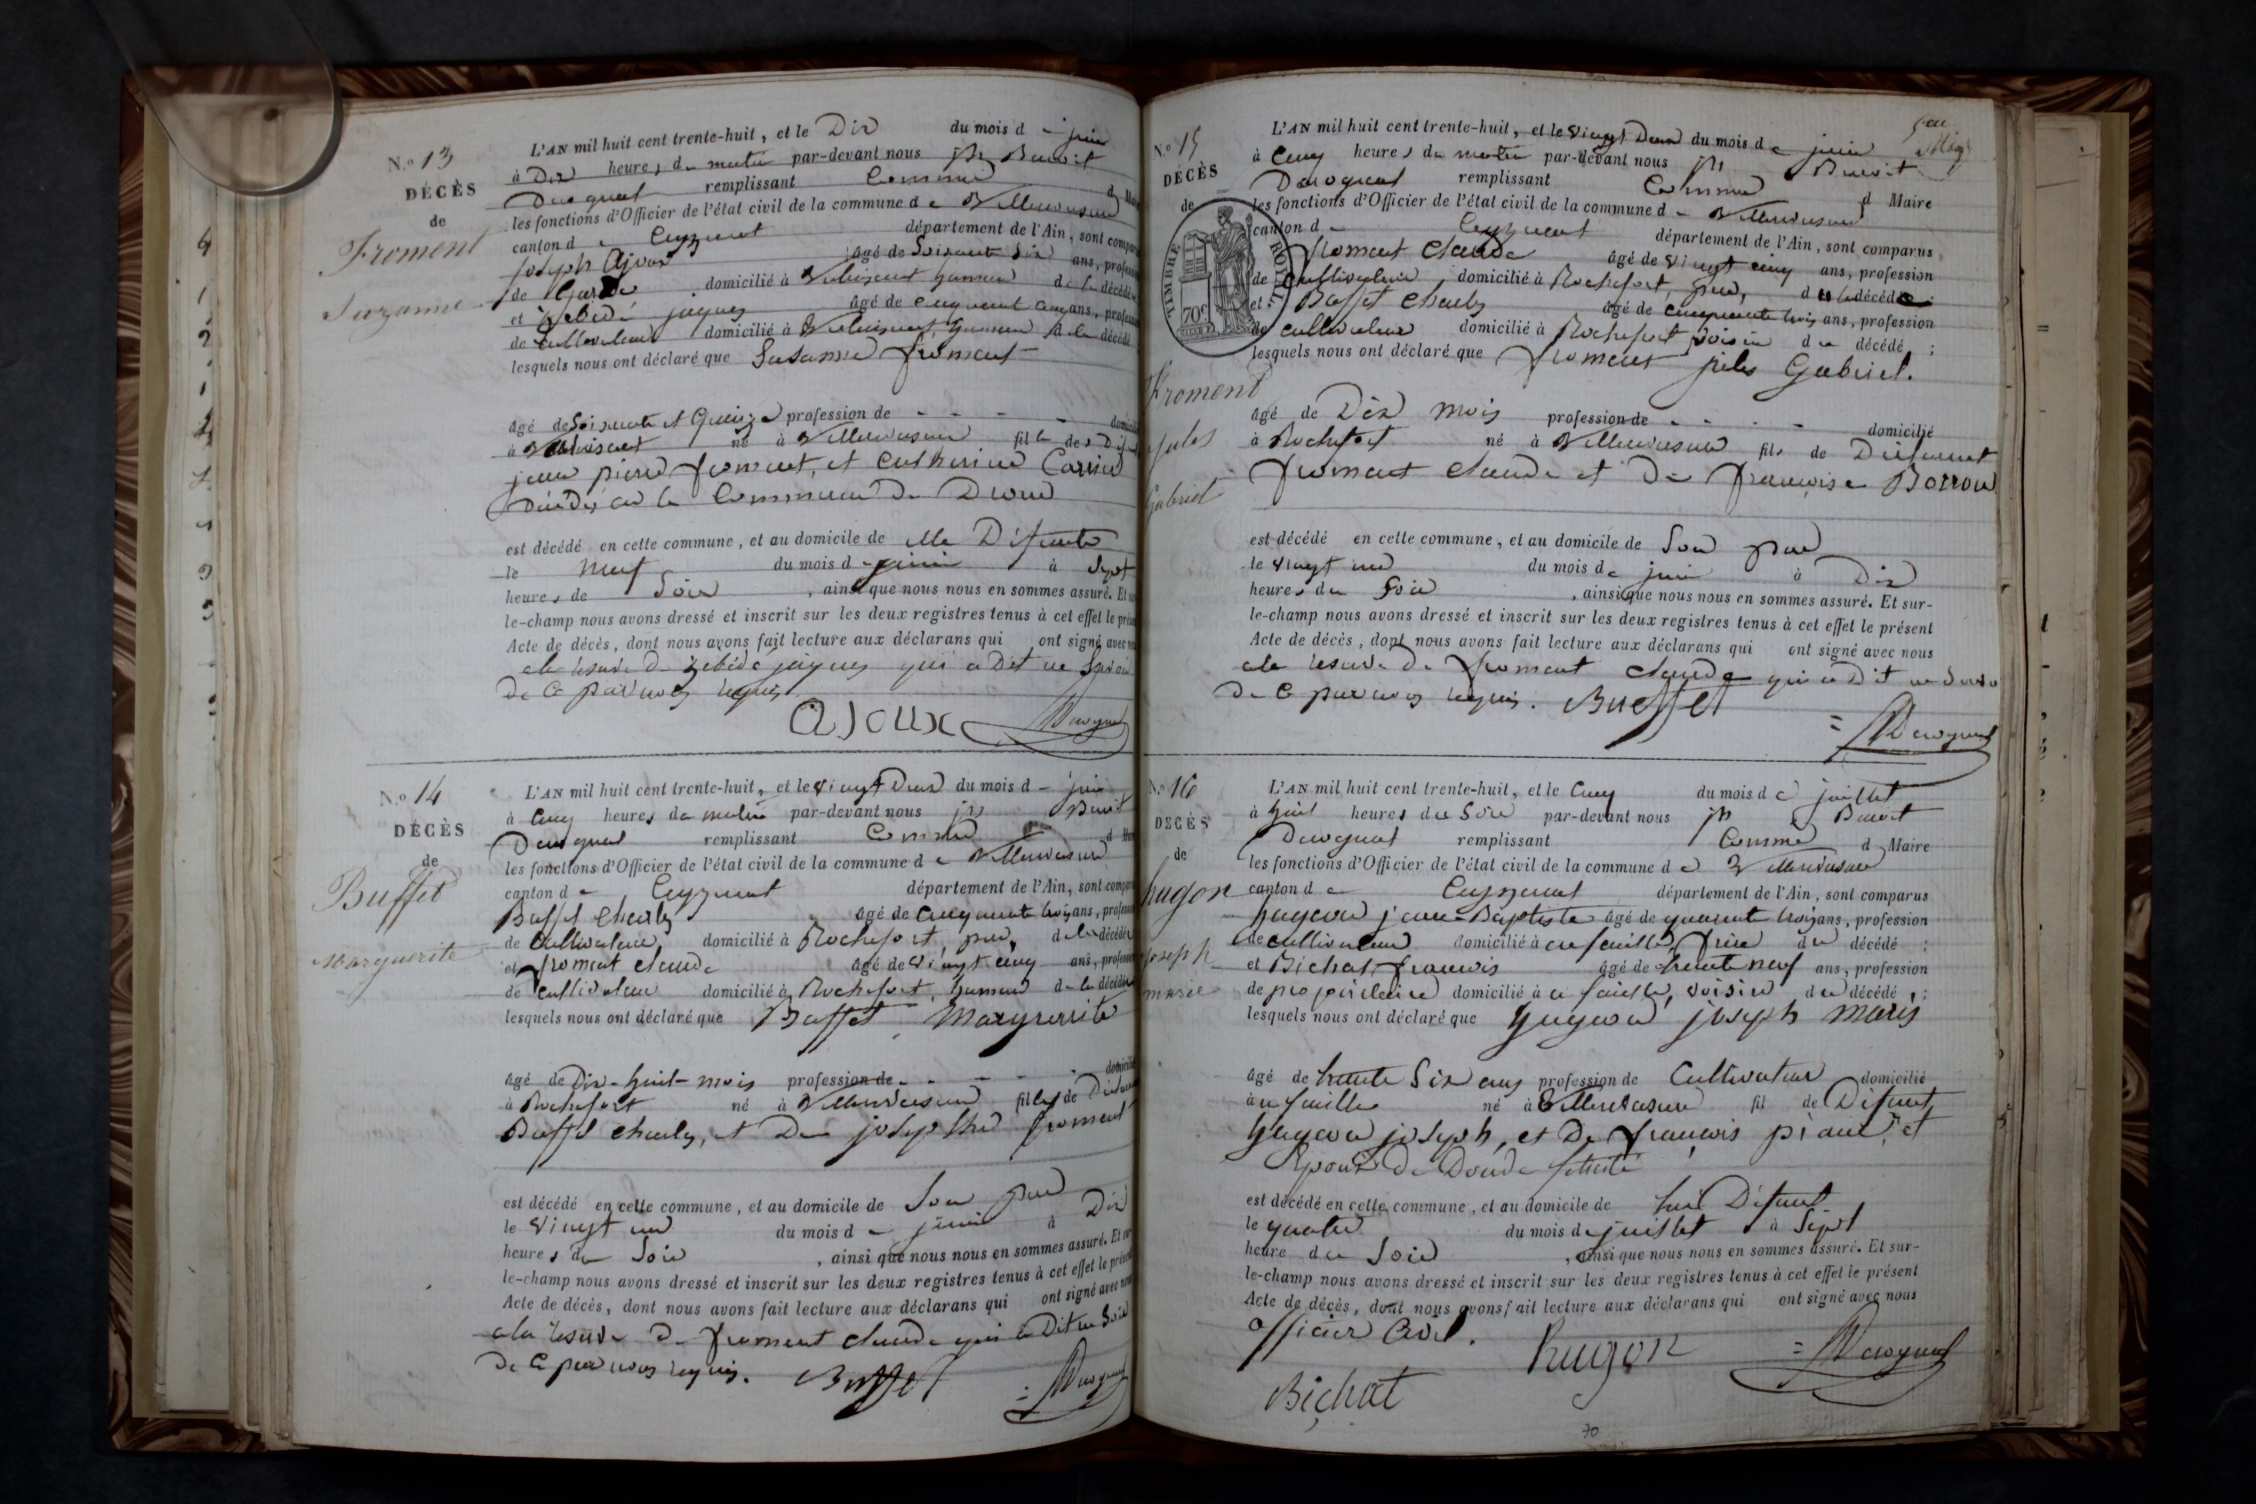 N.o 13
DÉCÈS
de
Froment
Suzanne
L'AN mil huit cent trente-huit, et le Dix du mois d juin
à Dix heures du matin par-devant nous jph Benoit
remplissant Comme
les fonctions d'Officier de l'état civil de la commune de Villereversure
canton de Ceyzeriat département de l'Ain, sont
joseph Ajoux âgé de Soixante Six ans,
de domicilié à de la décédée
et Zebédé jaques âgé de cinquante cinq ans,
de Cultivateur domicilié à de la décédé
lesquels nous ont déclaré que Susanne froment
âgé de Soixante et Quinze profession de
à né à Villereversure fille de
jean pierre froment, et Catherine
Décédés en la Commune de Drom
est décédé en cette commune, et au domicile de elle Défunte
le neuf du mois de juin à Sept
heures de Soir, ainsi que nous nous en sommes assuré. Et
le-champ nous avons dressé et inscrit sur les deux registres tenus à cet effet le
Acte de décès, dont nous avons fait lecture aux déclarans qui ont signé avec
a la reserve de Zebédé jaques qui a Dit ne Savoir
De Ce par nous requis.
AJOUX
N.o 14
DÉCÈS
de
Buffet
Marguerite
L'AN mil huit cent trente-huit, et le vingt Deux du mois d juin
à Cinq heures du matin par-devant nous jph Benoit
remplissant Comme
les fonctions d'Officier de l'état civil de la commune de Villereversure
canton de Ceyzeriat département de l'Ain, sont
Buffet Charles âgé de Cinquante trois ans,
de Cultivateur, domicilié à Rochefort, père, de la décédée
et froment claude âgé de vingt cinq ans,
de Cultivateur domicilié à Rochefort, de la décédée
lesquels nous ont déclaré que Buffet Marguerite
âgé de Dix-huit mois profession de
à Rochefort né à Villereversure fille de
Buffet Charles, et De josephe froment
est décédé en cette commune, et au domicile de Son père
le vingt un du mois de juin à Dix
heures du Soir, ainsi que nous nous en sommes assuré. Et
le-champ nous avons dressé et inscrit sur les deux registres tenus à cet effet le
Acte de décès, dont nous avons fait lecture aux déclarans qui ont signé avec
a la reserve De froment claude qui a Dit ne Savoir
De Ce par nous requis. Buffet
N.o 15
DÉCÈS
de
TIMBRE ROYAL
70c
Froment
jules
Gabriel
L'AN mil huit cent trente-huit, et le vingt Deux du mois de juin
à Cinq heures du matin par-devant nous jph Benoit
remplissant Comme d Maire
les fonctions d'Officier de l'état civil de la commune de Villereversure
canton de Ceyzeriat département de l'Ain, sont comparus
froment claude âgé de vingt cinq ans, profession
de Cultivateur, domicilié à Rochefort, père, du décédé
et Buffet Charles âgé de cinquante trois ans, profession
de cultivateur domicilié à Rochefort voisin du décédé ;
lesquels nous ont déclaré que froment jules Gabriel.
âgé de Dix mois profession de domicilié
à Rochefort né à Villereversure fils de
froment claude et De françoise Borron
est décédé en cette commune, et au domicile de Son père
le vingt un du mois de juin à Dix
heures du Soir, ainsi que nous nous en sommes assuré. Et sur-
le-champ nous avons dressé et inscrit sur les deux registres tenus à cet effet le présent
Acte de décès, dont nous avons fait lecture aux déclarans qui ont signé avec nous
a la reserve De froment claude qui a Dit ne Savoir
De Ce par nous requis. Buffet
N.o 16
DÉCÈS
de
hugon
joseph
marie
L'AN mil huit cent trente-huit, et le Cinq du mois de juillet
à huit heures du Soir par-devant nous jph Benoit
remplissant Comme d Maire
les fonctions d'Officier de l'état civil de la commune de Villereversure
canton de Ceyzeriat département de l'Ain, sont comparus
jean Baptiste âgé de quarante trois ans, profession
de cultivateur domicilié à frère du décédé ;
et Bichat françois âgé de trente neuf ans, profession
de propriétaire domicilié à voisin du décédé, ;
lesquels nous ont déclaré que joseph marie
âgé de trente Six ans profession de Cultivateur domicilié
à né à Villereversure fil de Défunt
joseph, et De françois et
Epoux De
est décédé en cette commune, et au domicile de lui Défunt
le quatre du mois de juillet à Sept
heure du Soir, ainsi que nous nous en sommes assuré. Et sur-
le-champ nous avons dressé et inscrit sur les deux registres tenus à cet effet le présent
Acte de décès, dont nous avons fait lecture aux déclarans qui ont signé avec nous
officier Civil. hugon
Bichat
70